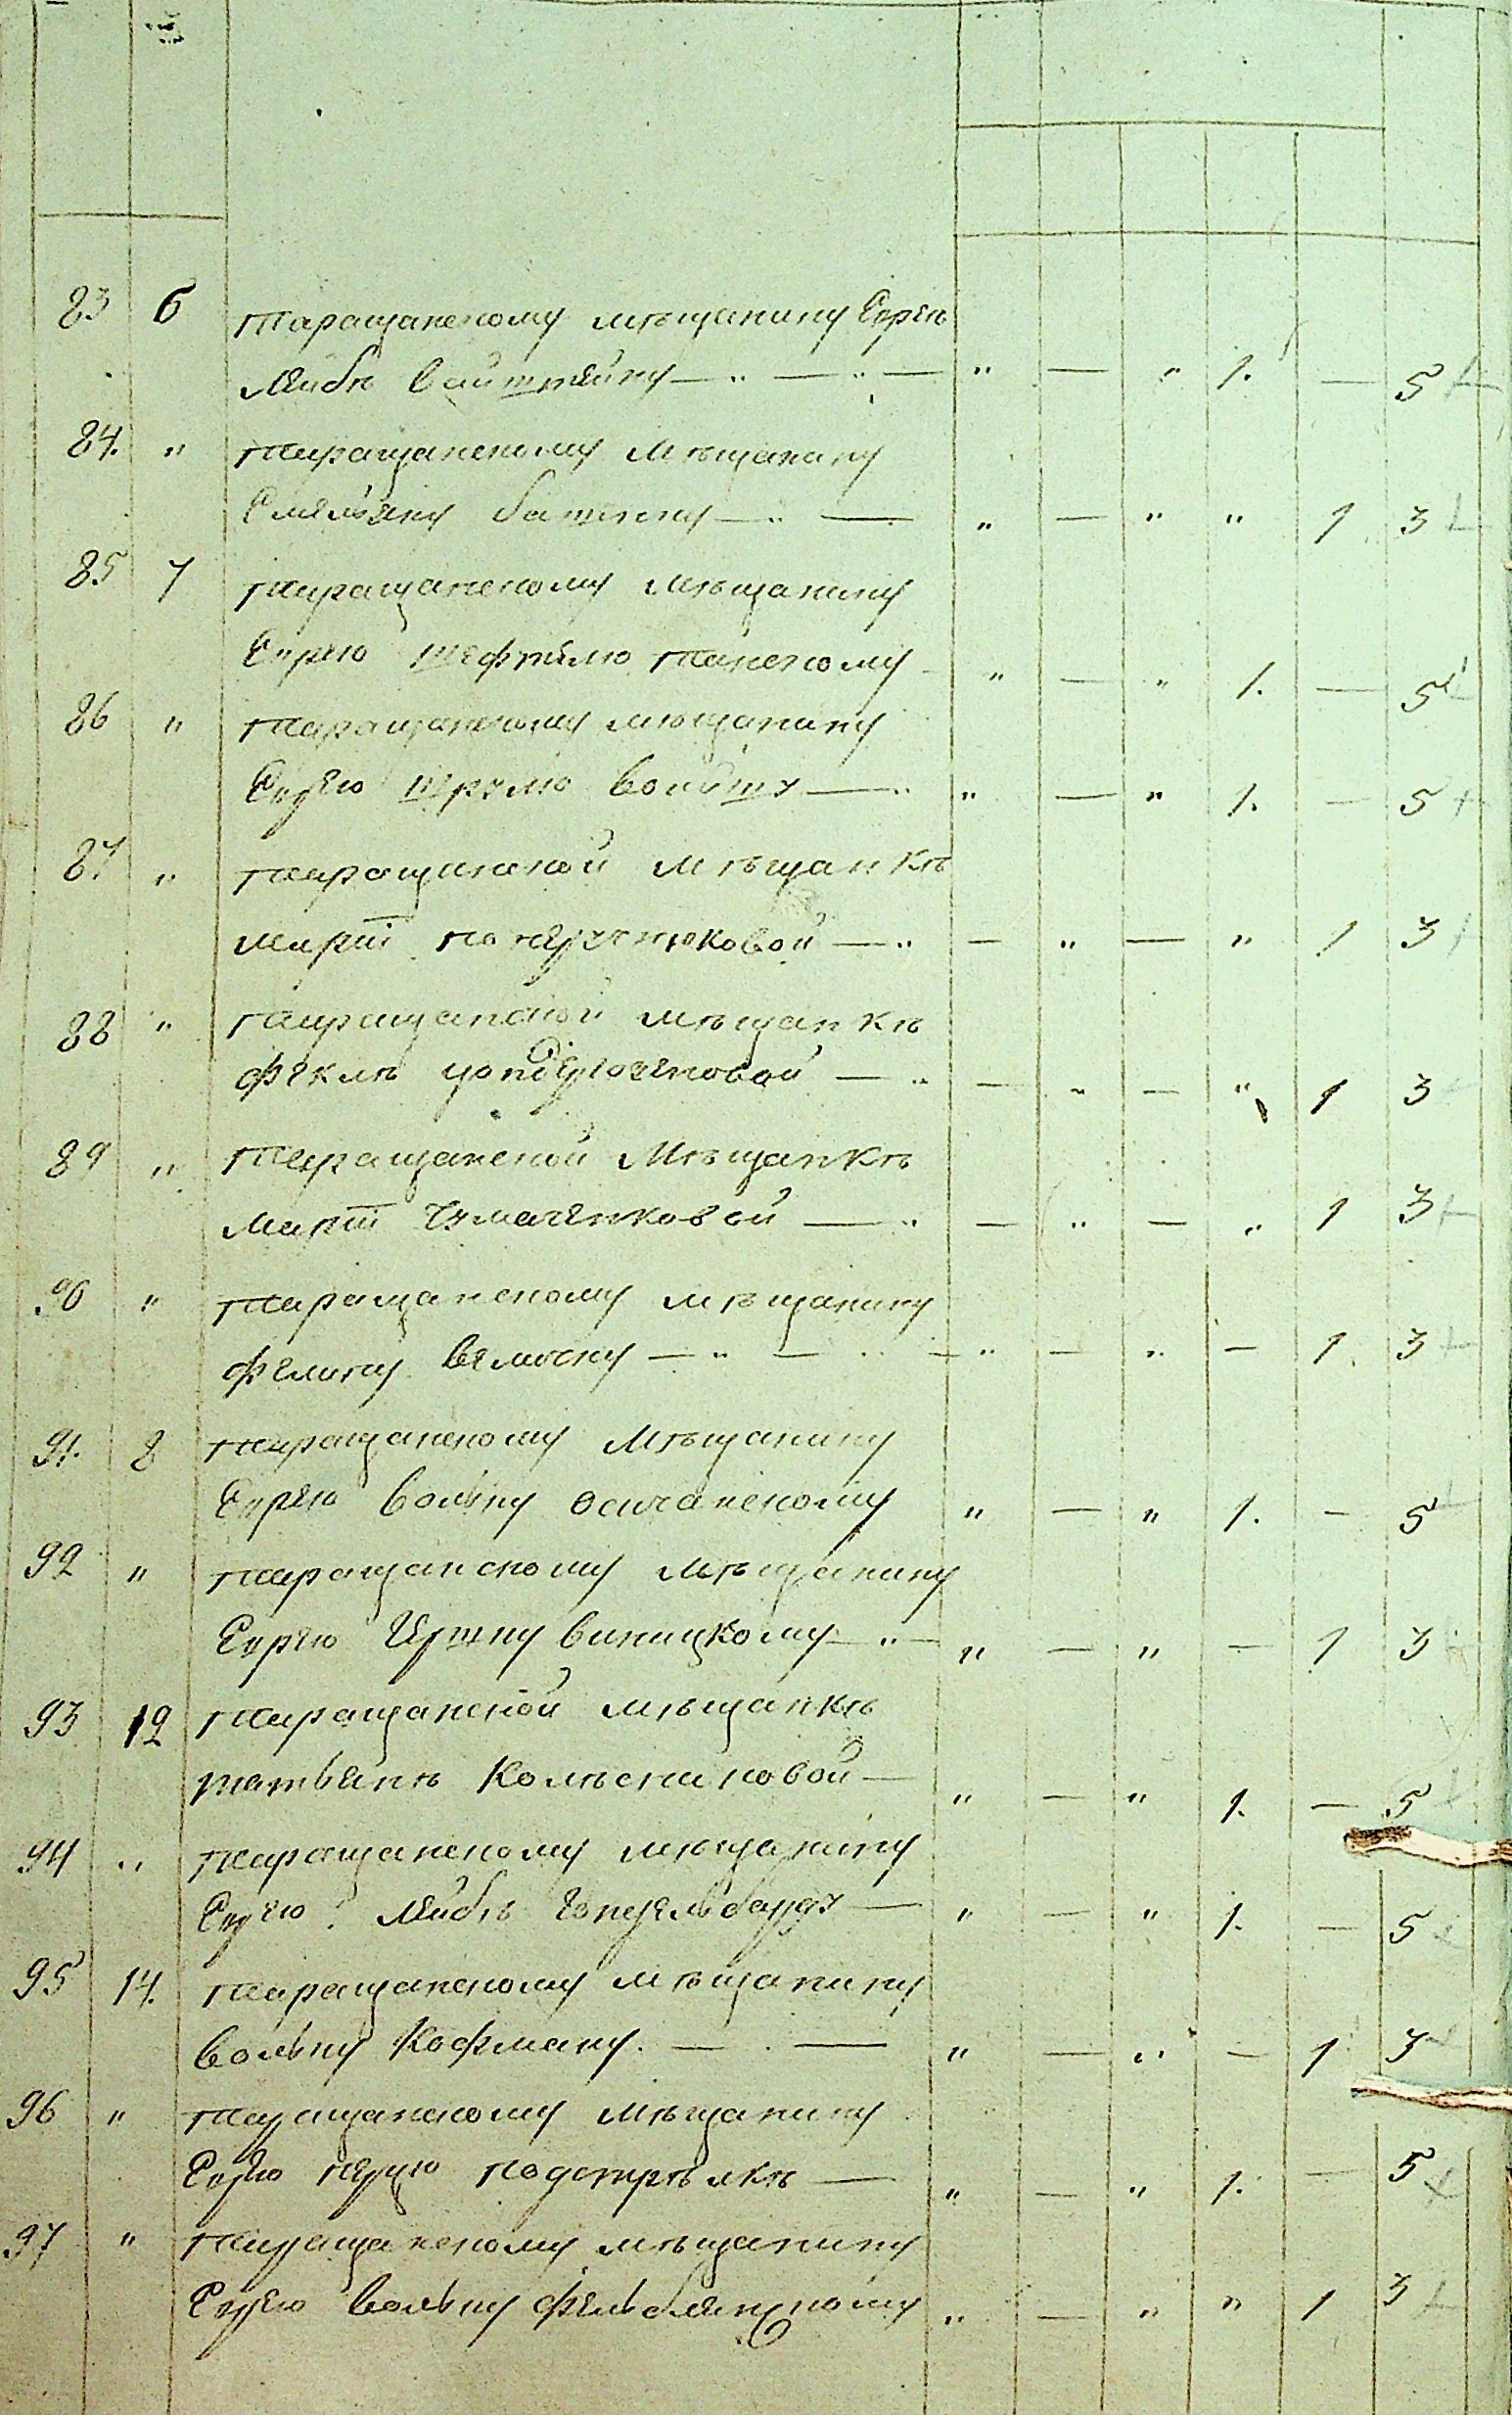 83 6 Таращанскому мѣщанину Еврею
Лейбѣ Вайштейну — " — " — " — " 1. — 5
84. " Таращанскому мѣщанину
Емельяну — " — " — " " 1 3
85 7 Таращанскому мѣщанину
Еврею Шефтелю Канскому " — " 1. — 5
86 " Таращанскому мѣщанину
Еврею Шрулю — " " — " 1. — 5
87 " Таращанской мѣщанкѣ
Марѳѣ — " — " — " 1 3
88 " Таращанской мѣщанкѣ
Феклѣ — " — " — " 1 3
89 " Таращанской Мѣщанкѣ
Марѳѣ Чумаченковой — " — " — " 1 3
90 " Таращанскому мѣщанину
Филипу Величку — " — " — " — " — 1. 3
91. 8 Таращанскому Мѣщанину
Еврею Вольку Осичанскому " — " 1. — 5
92 " Таращанскому мѣщанину
Еврею Иршку Виницкому — " — " — " — 1 3
93 12 Таращанской мѣщанкѣ
Татьянѣ Колѣсниковой — " — " 1. — 5
94 " Таращанскому мѣщанину
Еврею Лейбѣ — " — " 1. — 5
95 14. Таращанскому мѣщанину
Вольку Кофману. — . — " — " — 1 3
96 " Таращанскому мѣщанину
Еврею Герцю — " — " 1. — 5
97 " Таращанскому мѣщанину
Еврею Вольку " — " " 1 3